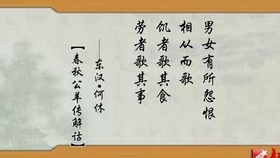 男女有所怨恨
相从而歌
饥者歌其食
劳者歌其事
——东汉·何休
【春秋公羊传解诂】